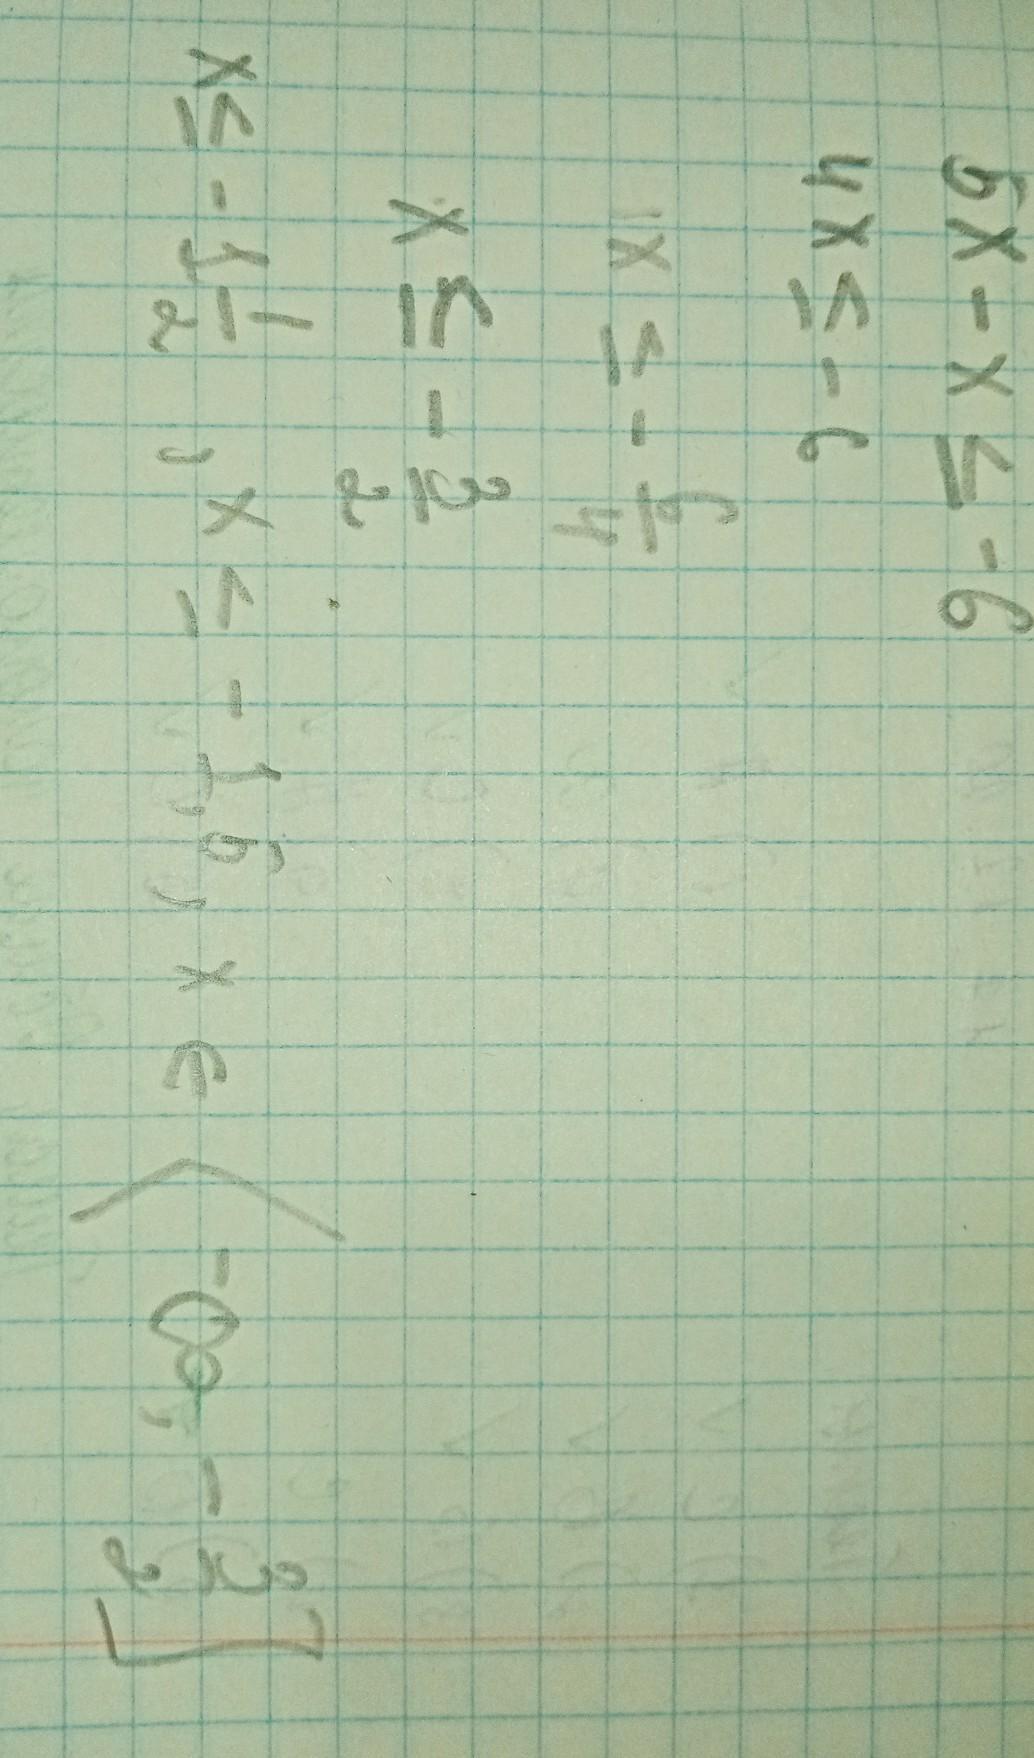 5x - x ≤ -6
4x ≤ -6
x ≤ - 6/4
x ≤ - 3/2
x ≤ -1 1/2, x ≤ -1,5, x ∈ ⟨-∞, - 3/2]